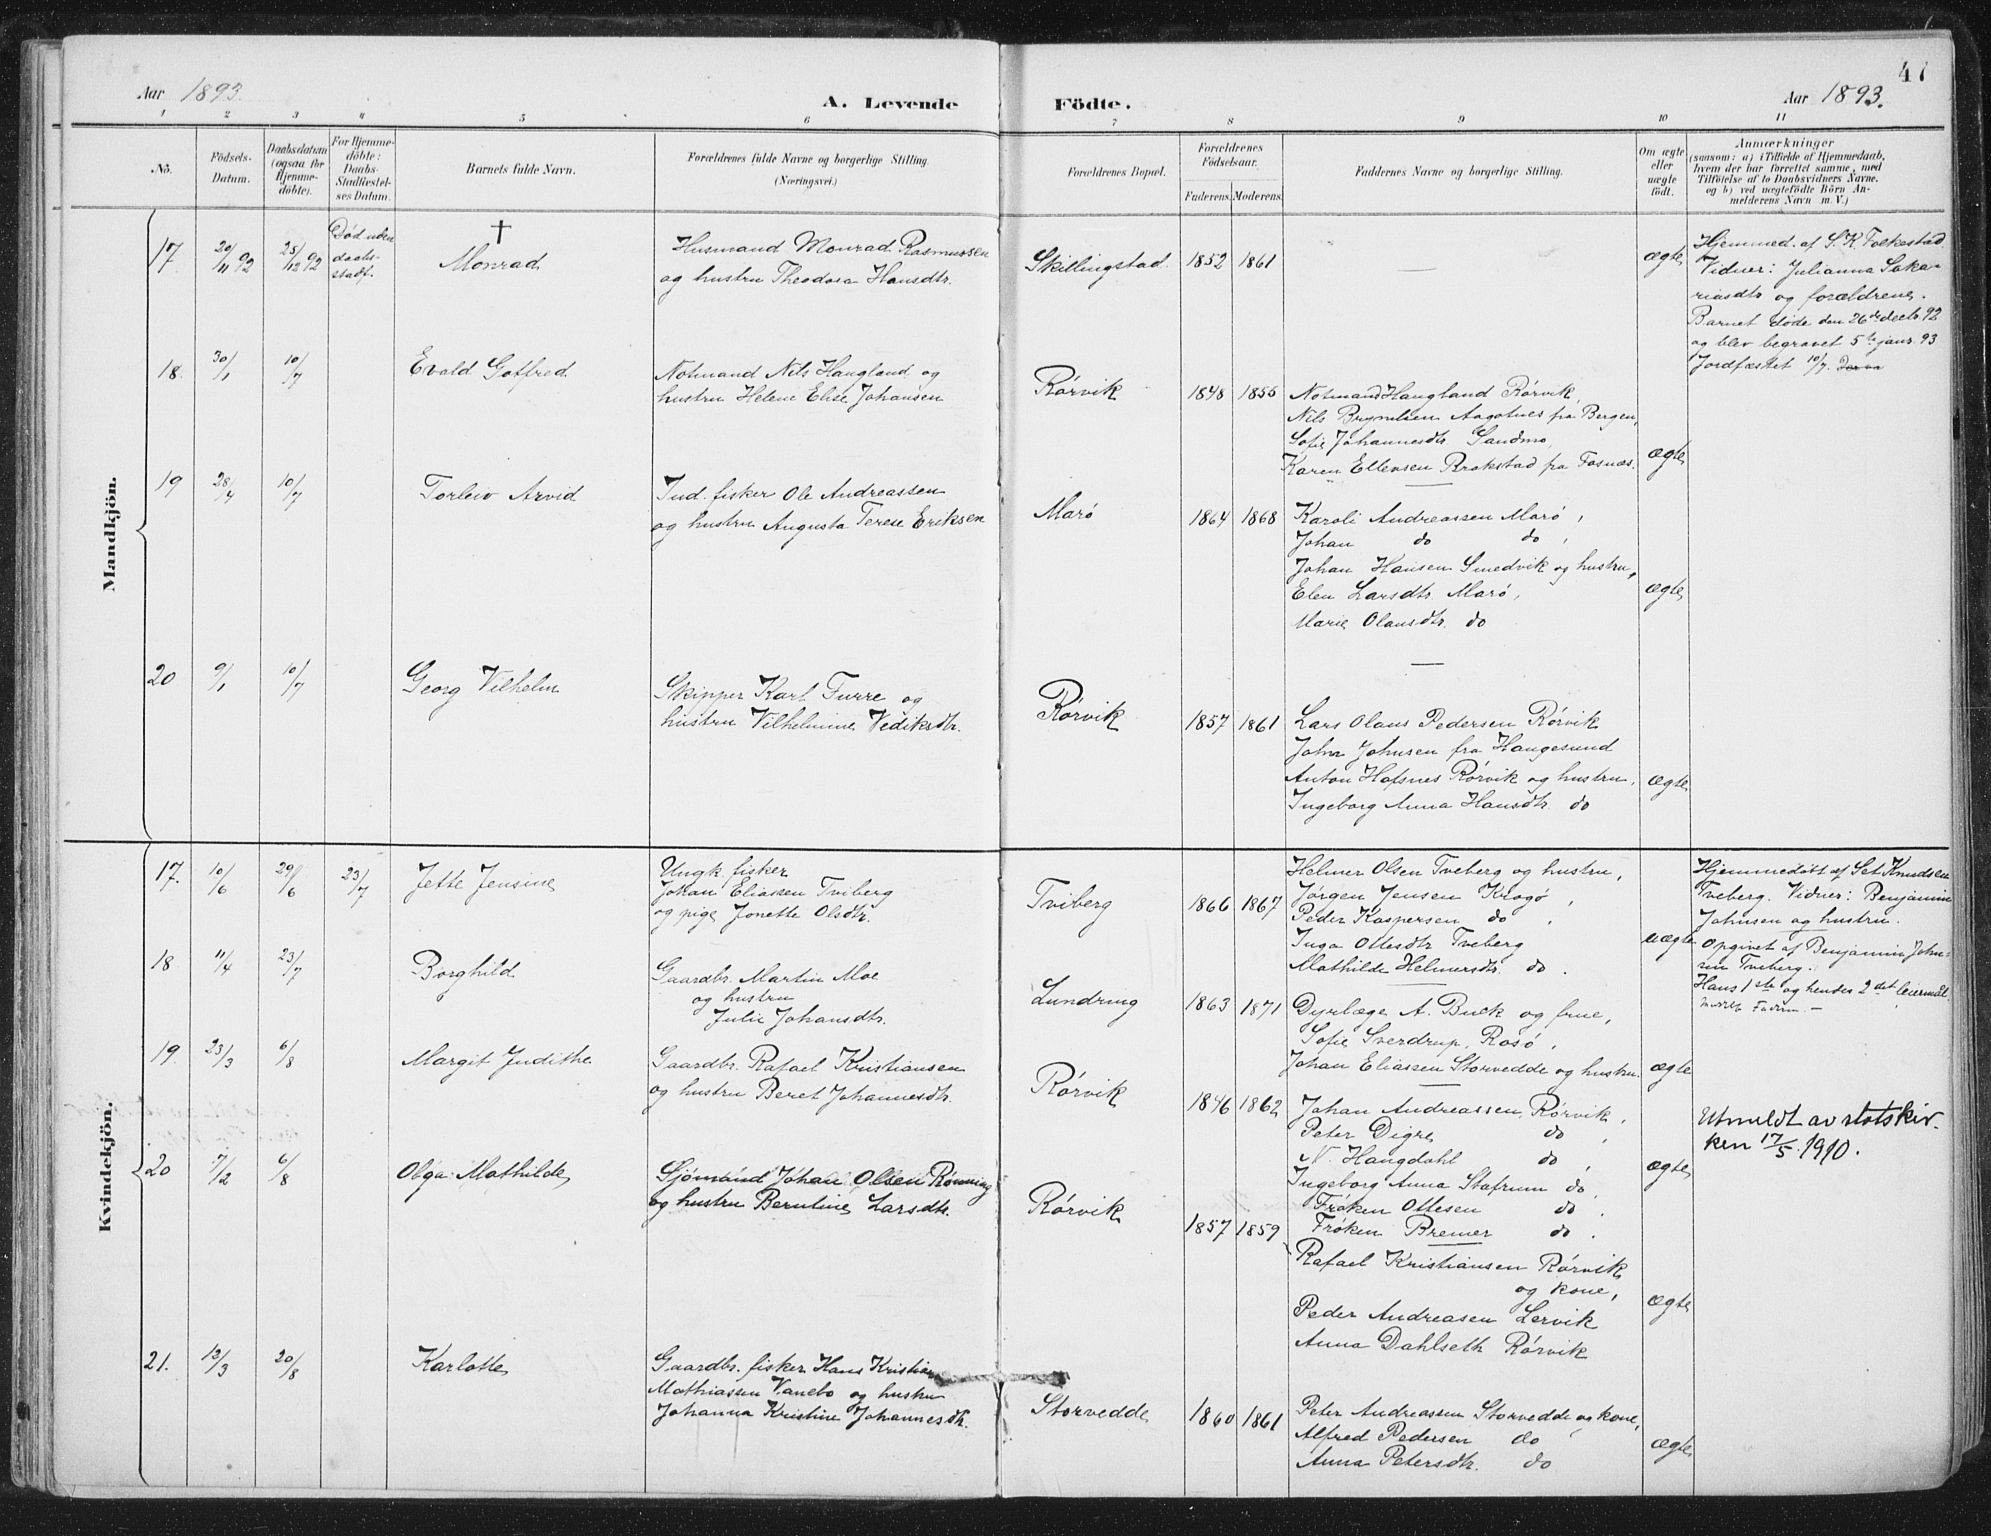 Aar 1893.
A. Levende Födte.
Aar 1893.
47
1 2 3 4 5 6 7 8 9 10 11
No.
Födsels-Datum.
Daabsdatum (ogsaa for Hjemme-döbte).
For Hjemme-döbte: Daabs-Stadfæstel-ses Datum.
Barnets fulde Navn.
Forældrenes fulde Navne og borgerlige Stilling.
(Næringsvei.)
Forældrenes Bopæl.
Forældrenes Födselsaar.
Faderens. Moderens.
Faddernes Navne og borgerlige Stilling.
Om ægte eller uægte födt.
Anmærkninger
(saasom: a) i Tilfælde af Hjemmedaab,
hvem der har forrettet samme, med
Tilföielse af to Daabsvidners Navne,
og b) ved uægtefödte Börn An-
melderens Navn m. V.)
Mandkjön.
17. 20/11 92 25/12 92 Död uden daabs-stadf. † Monrad
Husmand Monrad Rasmussen
og hustru Theodosa Hansdtr.
Skillingstad. 1852 1861 — ægte
Hjemmed. af S. K. Folkestad.
Vidner: Julianna Saka-
riasdtr og forældrene.
Barnet döde den 26de decbr. 92
og blev begravet 5te janr. 93
Jordfæstet 10/7.
18. 30/1 10/7 Evald Gotfred
Notmand Nils Haugland og
hustru Helene Elise Johansen
Rörvik 1848 1855
Notmand Haugland Rörvik,
Nils Brynilsen Aagotnes fra Bergen,
Sofie Johannesdtr Sandmo,
Karen Ellevsen Brakstad fra Fosnæs. ægte
19 28/4 10/7 Torleiv Arvid
Ind. fisker Ole Andreassen
og hustru Augusta Terese Eriksen
Marö 1864 1868
Karoli Andreassen Marö,
Johan do do,
Johan Hansen Smedvik og hustru,
Elen Larsdtr. Marö, ægte
Marie Olausdtr. do
20 9/1 10/7 Georg Vilhelm
Skipper Karl Furre og
hustru Vilhelmine Vediksdtr.
Rörvik 1857 1861
Lars Olaus Pedersen Rörvik
John Johnsen fra Haugesund
Anton Hofsnes Rörvik og hustru, ægte
Ingeborg Anna Hansdtr. do
Kvindekjön.
17. 10/6 29/6 23/7 Jette Jensine
Ungk. fisker
Johan Eliassen Tviberg
og pige Jonette Olsdtr.
Tviberg 1866 1867
Helmer Olsen Tveberg og hustru,
Jörgen Jensen Krogö,
Peder Kaspersen do,
Inga Ottesdtr Tveberg
Mathilde Helmersdtr. do. uægte
Hjemmedöbt af Set. Knudsen
Tveberg. Vidner: Benjamin
Johnsen og hustru.
Opgivet af Benjamin John-
sen Tveberg.
Hans 1ste og hendes 2det leiermål
18 11/4 23/7 Borghild
Gaardbr. Martin Moe
og hustru
Julie Johansdtr.
Lundring 1863 1871
Dyrlæge A. Buck og frue,
Sofie Sverdrup, Rosö,
Johan Eliassen Storvedde og hustru. ægte
19. 23/3 6/8 Margit Judithe
Gaardbr. Rafael Kristiansen
og hustru Beret Johannesdtr.
Rörvik 1846 1862
Johan Andreassen, Rörvik,
Peter Digre do,
N. Haugdahl do,
Ingeborg Anna Stafrum do,
Fröken Ottesen do.
Fröken Bremer do. ægte
Utmeldt av statskir-
ken 17/5 1910.
20 7/2 6/8 Olga Mathilde
Sjömand Johan Olsen Rönning
og hustru Berntine Larsdtr.
Rörvik 1857 1859
Rafael Kristiansen Rörvik
og kone,
Peder Andreasen Lervik
Anna Dahlseth Rörvik ægte
21. 12/3 20/8 Karlotte
Gaardbr. fisker Hans Kristian
Mathiassen Vanebo og hustru
Johanna Kristine Johannesdtr.
Storvedde 1860 1861
Peter Andreassen Storvedde og kone,
Alfred Pedersen do
Anna Petersdtr. do ægte